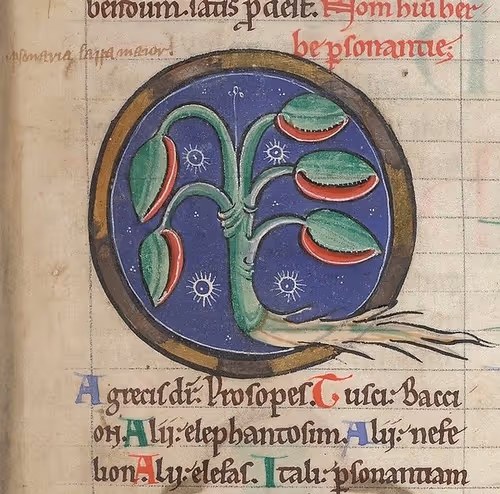 bendum. latis pdest. Nom hui͛ her
be psonantie;
psonaria lappa maior.
A grecis dr̄. Prosopes. Tusci: Bacci
on. Alij: elephantosim. Alij: nefe
lion. Alij: elefas. Itali: psonantiam